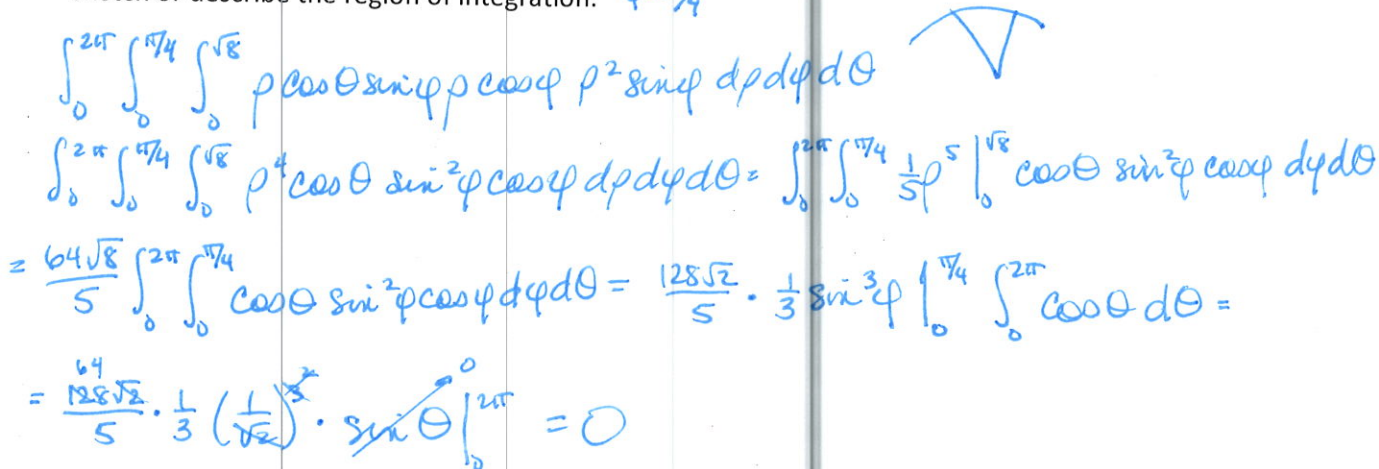 the region of integration.
∫₀^{2π} ∫₀^{π/4} ∫₀^{√8} ρ cos θ sin φ ρ cos φ ρ² sin φ dρ dφ dθ
∫₀^{2π} ∫₀^{π/4} ∫₀^{√8} ρ⁴ cos θ sin²φ cos φ dρ dφ dθ = ∫₀^{2π} ∫₀^{π/4} 1/5 ρ⁵ |₀^{√8} cos θ sin²φ cos φ dφ dθ
= 64√8/5 ∫₀^{2π} ∫₀^{π/4} cos θ sin²φ cos φ dφ dθ = 128√2/5 · 1/3 sin³φ |₀^{π/4} ∫₀^{2π} cos θ dθ =
64
= 128√2/5 · 1/3 (1/√2)^{3 2} · sin θ |₀^{2π} 0 = 0